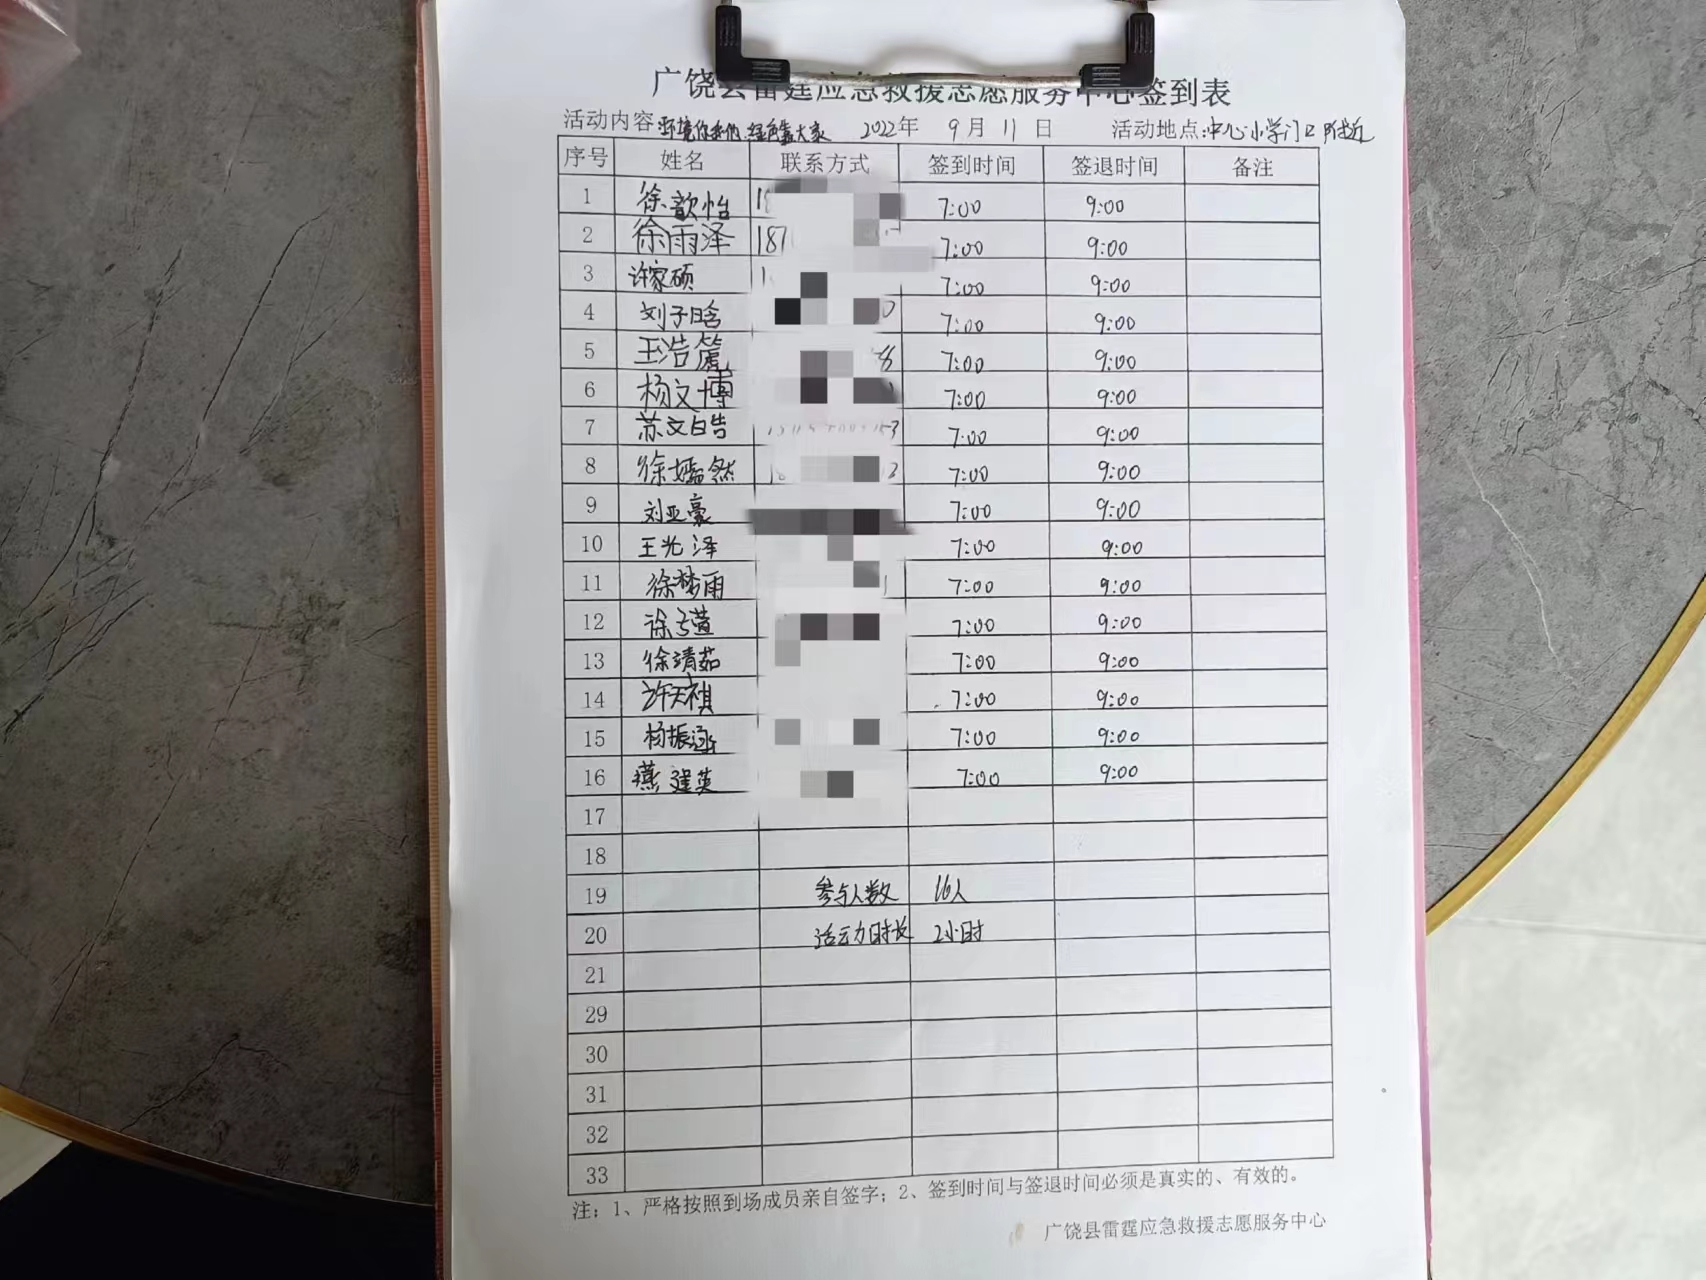 广饶县雷霆应急救援志愿服务中心签到表
活动内容:环境你我他 绿色靠大家 2022年 9月 11日 活动地点:中心小学门口附近
序号 姓名 联系方式 签到时间 签退时间 备注
1 徐歆怡 18 7:00 9:00
2 徐雨泽 187 7:00 9:00
3 许家硕 1 7:00 9:00
4 刘子晗 0 7:00 9:00
5 王浩篪 8 7:00 9:00
6 杨文博 7:00 9:00
7 苏文皓 53 7:00 9:00
8 徐嫣然 18 7:00 9:00
9 刘亚豪 7:00 9:00
10 王光泽 7:00 9:00
11 徐梦雨 7:00 9:00
12 徐萱 7:00 9:00
13 徐靖茹 7:00 9:00
14 许天祺 7:00 9:00
15 杨振涵 7:00 9:00
16 燕建英 7:00 9:00
17
18
19 参与人数 16人
20 活动时长 2小时
21
29
30
31
32
33
注:1、严格按照到场成员亲自签字;2、签到时间与签退时间必须是真实的、有效的。
广饶县雷霆应急救援志愿服务中心